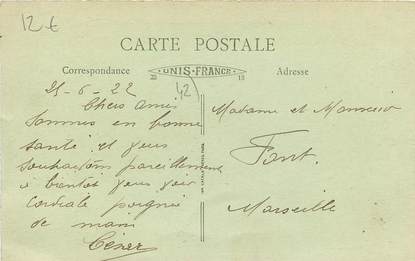 12€
CARTE POSTALE
Correspondance
UNIS-FRANCE
Adresse
25-6-22
42
Chers amis
Sommes en bonne
santé et
souhaitons pareillement
à bientôt voir
cordiale poignée
de main
Madame et Monsieur
Font.
Marseille